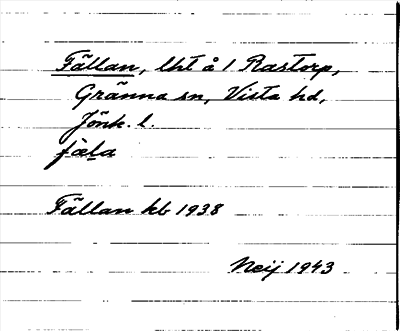 Fällan, lht å 1 Rastorp,
Gränna sn, Vista hd,
Jönk. l.
fæla
Fällan kb 1938
Neij 1943